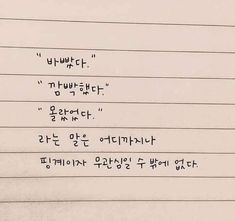 "바빴다."
"깜빡했다."
"몰랐었다."
라는 말은 어디까지나
핑계이자 무관심일 수 밖에 없다.